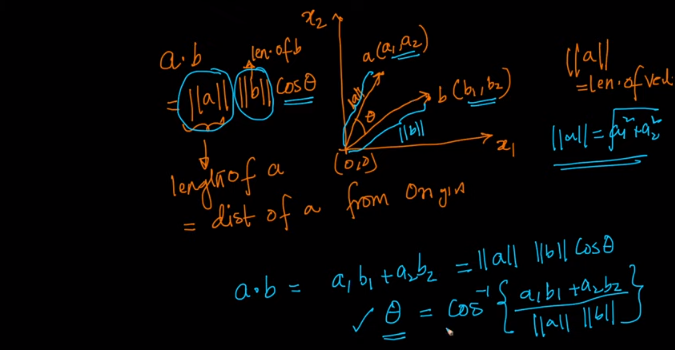 a·b
len. of b
= ||a|| ||b|| cosθ
length of a
= dist of a from origin
x₂
a (a₁,a₂)
||a||
θ
b (b₁,b₂)
||b||
x₁
(0,0)
||a||
= len. of vec
||a|| = √a₁² + a₂²
a·b = a₁b₁ + a₂b₂ = ||a|| ||b|| cosθ
✓ θ = cos⁻¹ { a₁b₁ + a₂b₂ / ||a|| ||b|| }